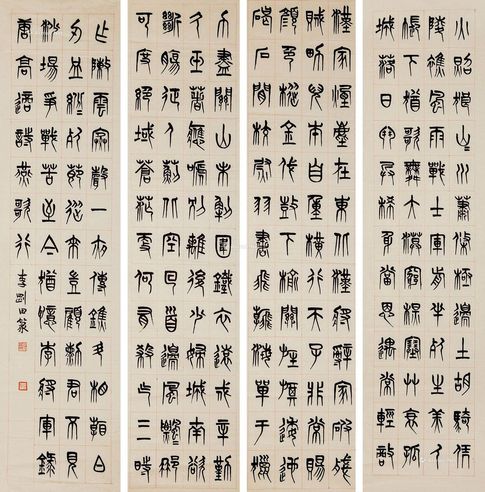 漢家煙塵在東北漢將辭家破殘
賊男兒本自重橫行天子非常賜
顏色摐金伐鼓下榆關旌旆逶迤
碣石間校尉羽書飛瀚海單于獵
火照狼山〻川蕭條極邊土胡騎憑
陵雜風雨戰士軍前半死生美人
帳下猶歌舞大漠窮秋塞草衰孤
城落日鬥兵稀身當恩遇常輕敵
力盡關山未解圍鐵衣遠戍辛勤
久玉箸應啼別離後少婦城南欲
斷腸征人薊北空回首邊風飄〻那
可度絕域蒼茫更何有殺氣三時
作陣雲寒聲一夜傳刁斗相看白
刃血紛〻死節從來豈顧勳君不見
沙場爭戰苦至今猶憶李將軍錄
唐高適詩燕歌行
李剛田篆